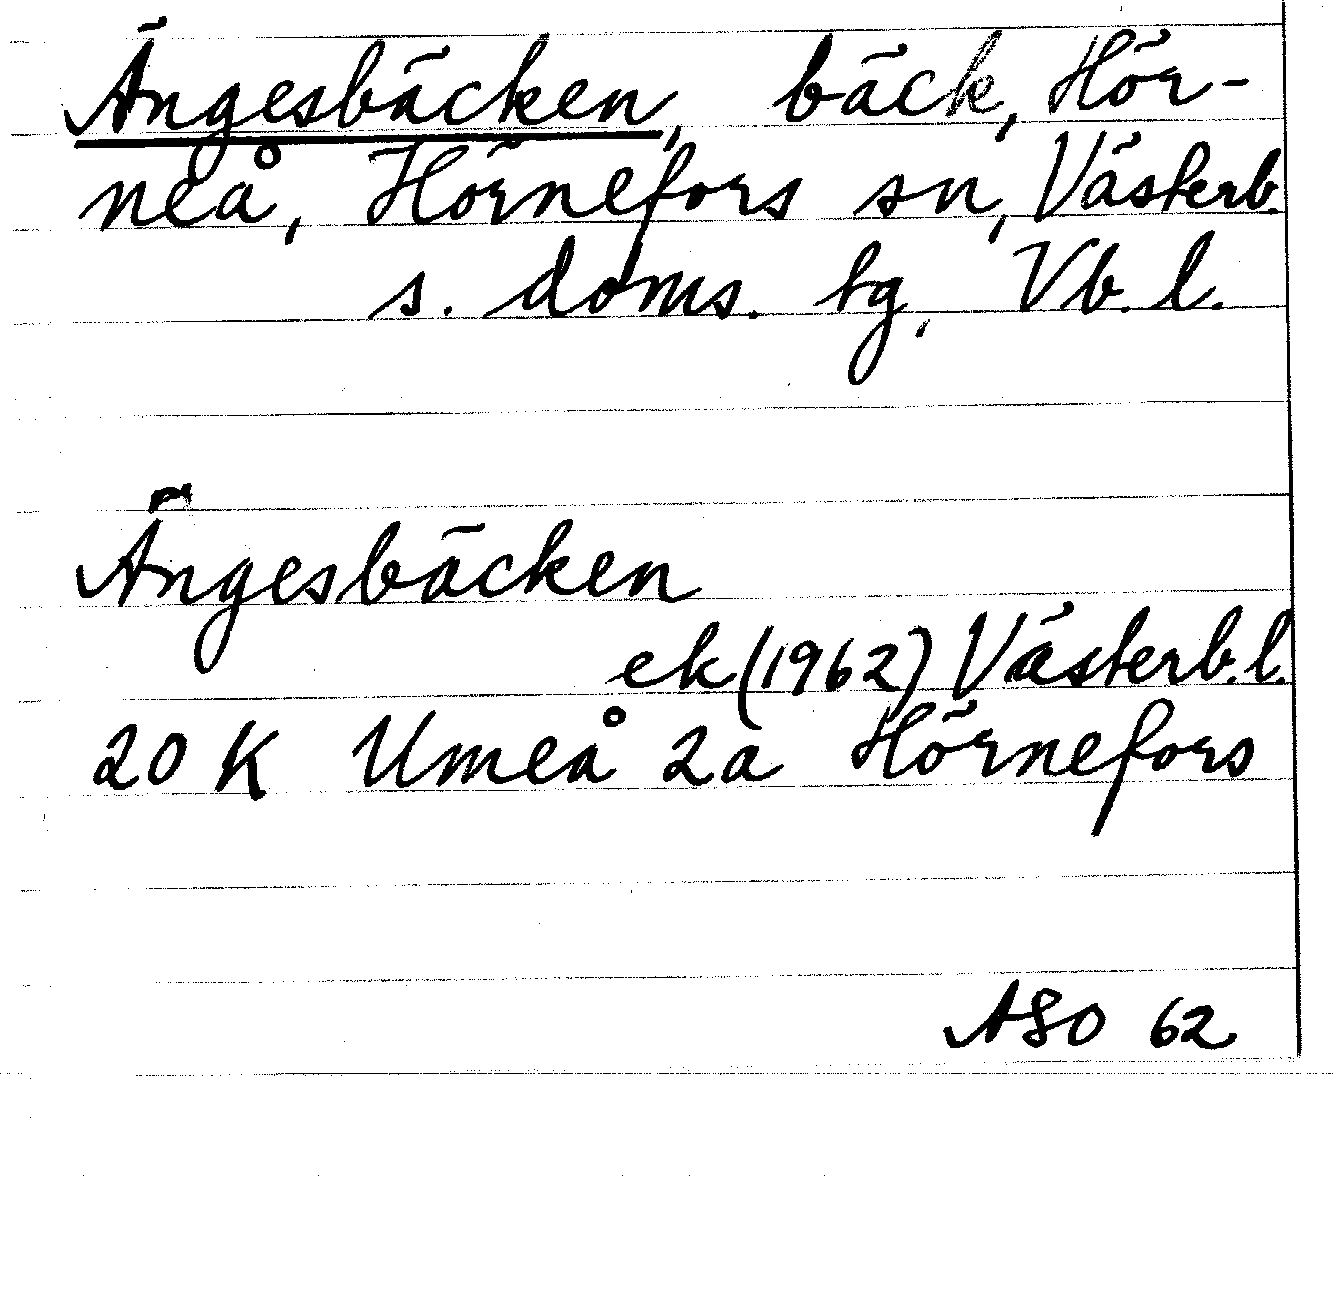 Ängesbäcken, bäck, Hör-
neå, Hörnefors sn, Västerb.
s. doms. tg, Vb. l.
Ängesbäcken
ek (1962) Västerb. l.
20 K Umeå 2a Hörnefors
ASO 62